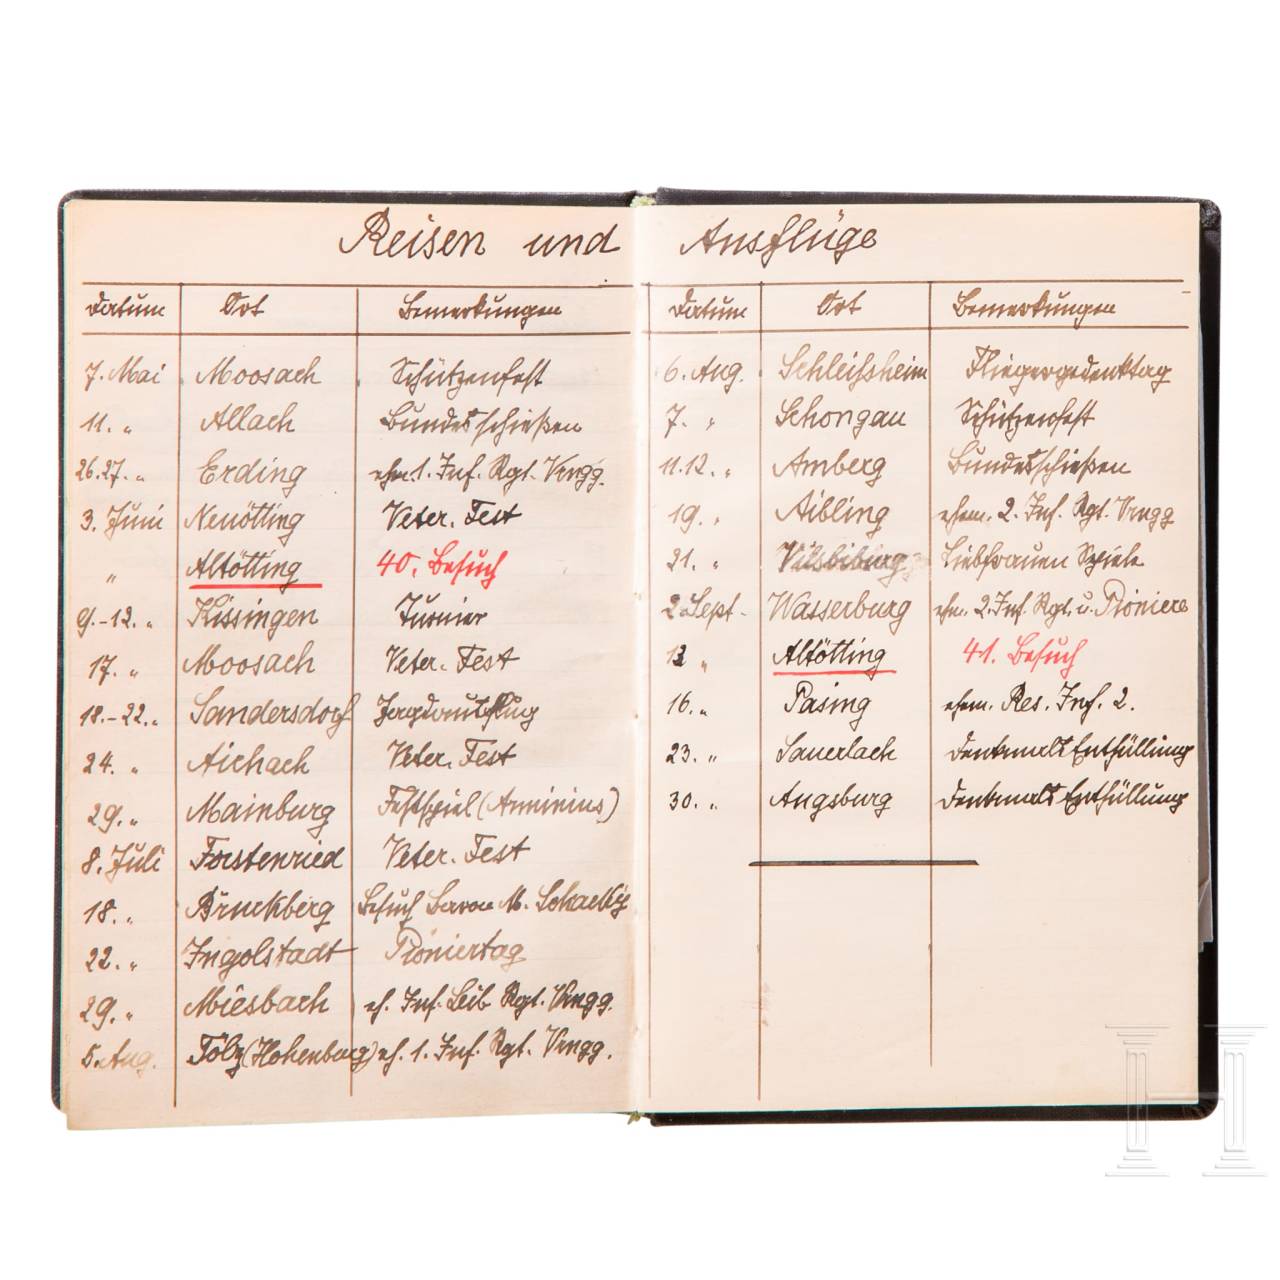 Reisen und Ausflüge
Datum Ort Bemerkungen
7. Mai Moosach Schützenfest
11. „ Allach Bundesschießen
26.27. „ Erding ehm. 1. Inf. Rgt. Vrngg.
3. Juni Neuötting Veter. Fest
„ Altötting 40. Besuch
9.-12. „ Kissingen Turnier
17. „ Moosach Veter. Fest
18.-22. „ Sandersdorf Jagdausflug
24. „ Aichach Veter. Fest
29. „ Mainburg Festspiel (Arminius)
8. Juli Forstenried Veter. Fest
18. „ Bruckberg Besuch Baron M.
22. „ Ingolstadt Pioniertag
29. „ Miesbach eh. Inf. Leib Rgt. Vrngg.
5. Aug. Tölz (Hohenburg) eh. 1. Inf. Rgt. Vrngg.
Datum Ort Bemerkungen
6. Aug. Schleißheim Fliegergedenktag
7. „ Schongau Schützenfest
11.12. „ Amberg Bundesschießen
19. „ Aibling ehem. 2. Inf. Rgt. Vrngg
21. „ Vilsbiburg Liebfrauen Spiele
2. Sept. Wasserburg ehm. 2. Inf. Rgt. u. Pioniere
12 „ Altötting 41. Besuch
16. „ Pasing ehem. Res. Inf. 2.
23. „ Sauerlach Denkmals Enthüllung
30. „ Augsburg Denkmals Enthüllung